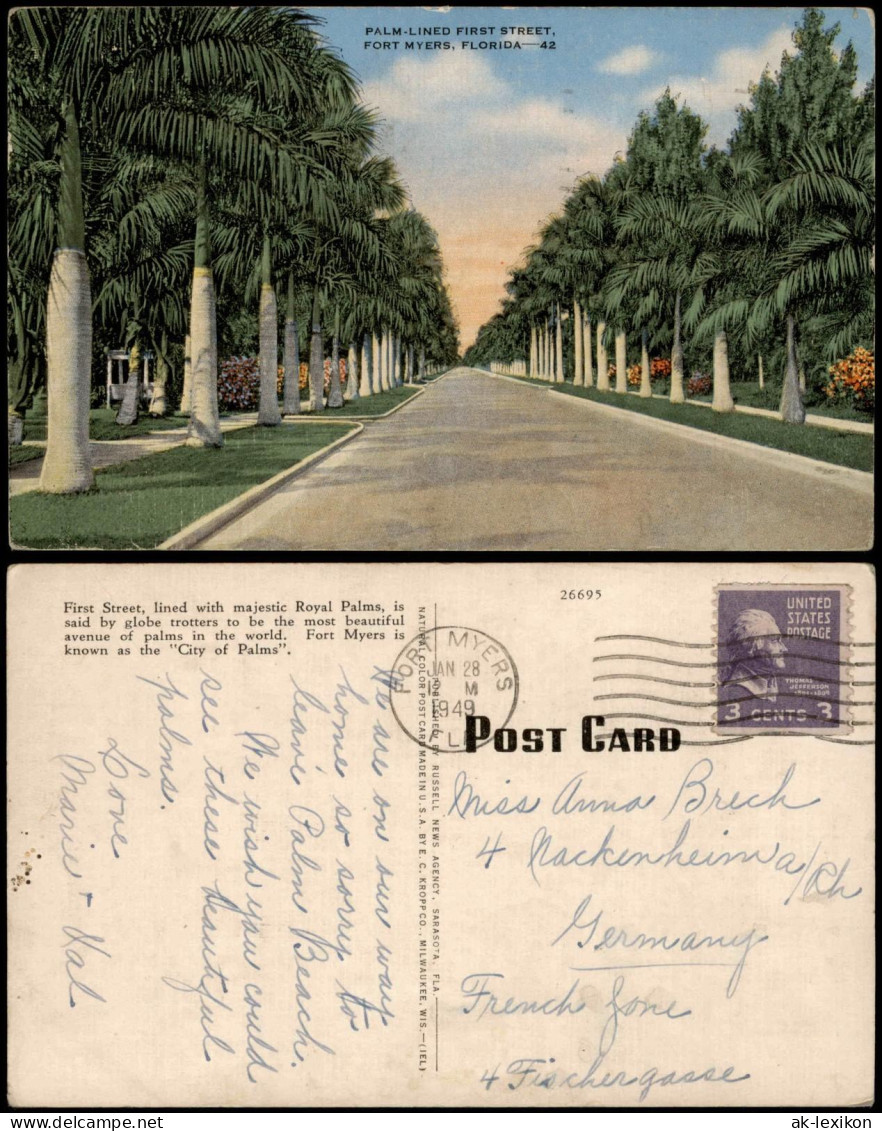 PALM-LINED FIRST STREET,
FORT MYERS, FLORIDA—42
First Street, lined with majestic Royal Palms, is
said by globe trotters to be the most beautiful
avenue of palms in the world. Fort Myers is
known as the "City of Palms".
We are on our way
home, so sorry to
leave Palm Beach.
We wish you could
see these beautiful
palms.
Love
Marie + Val
PUBLISHED BY RUSSELL NEWS AGENCY, SARASOTA, FLA.
NATURAL COLOR POST CARD MADE IN U.S.A. BY E. C. KROPP CO., MILWAUKEE, WIS.—(IEL)
26695
FORT MYERS
JAN 28
M
1949
UNITED
STATES
POSTAGE
THOMAS
JEFFERSON
3 CENTS 3
POST CARD
Miss Anna Brech
4 Nackenheim a/Rh
Germany
French Zone
4 Fischergasse
www.ansichtskarten-lexikon.de
ak-lexikon